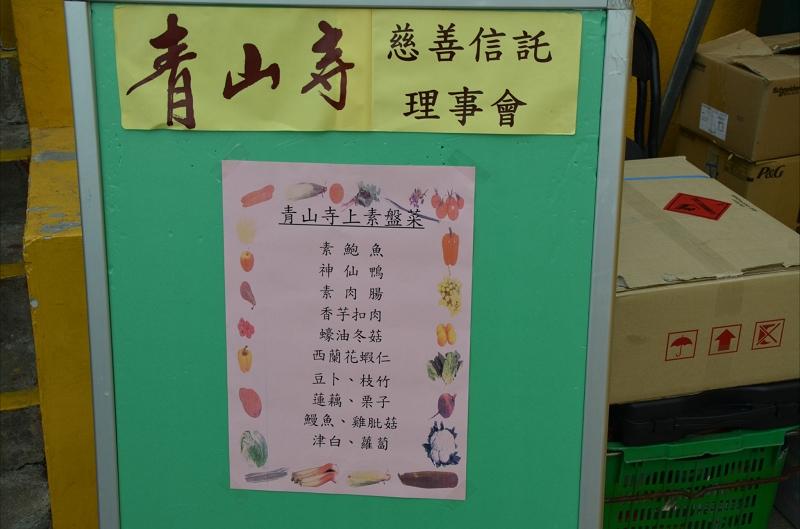 青山寺
慈善信託
理事會
青山寺上素盤菜
素鮑魚
神仙鴨
素肉腸
香芋扣肉
蠔油冬菇
西蘭花蝦仁
豆卜、枝竹
蓮藕、栗子
鰻魚、雞肶菇
津白、蘿蔔
P&G